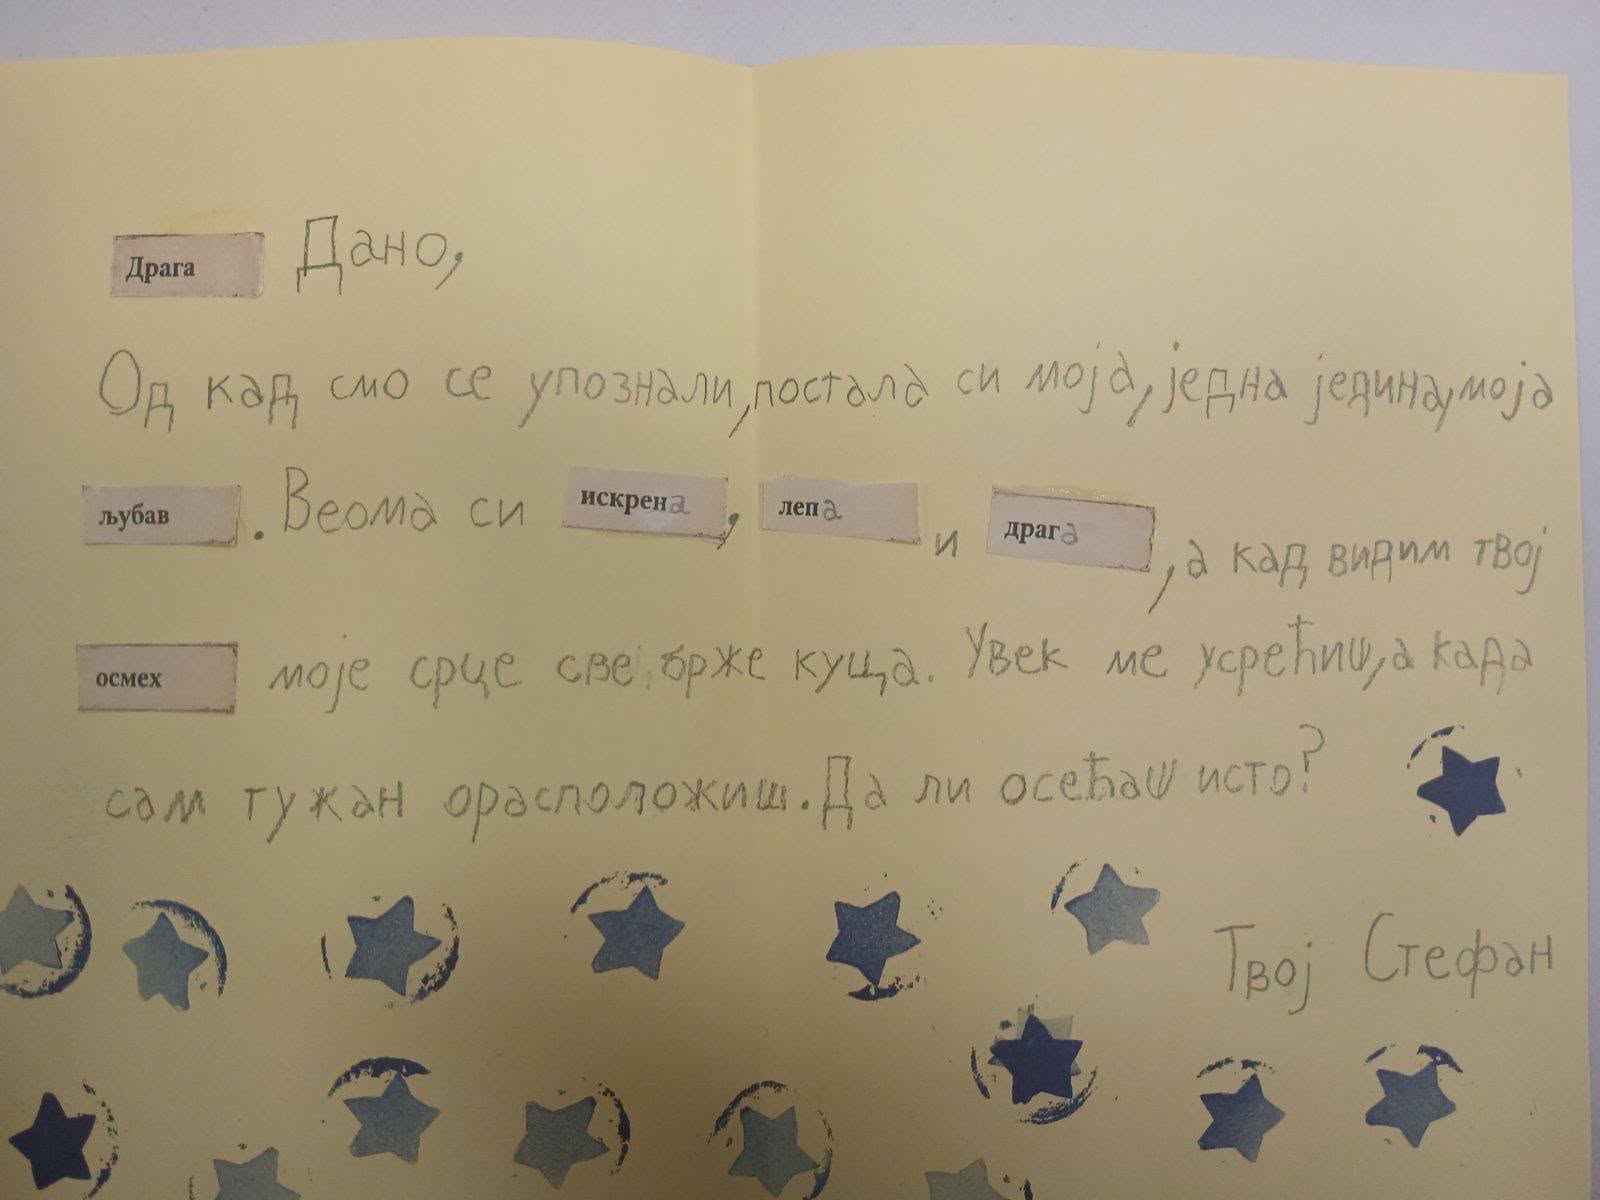 Драга Дано,
Од кад смо се упознали, постала си моја, једна једина, моја
љубав. Веома си искрена, лепа и драга, а кад видим твој
осмех моје срце све брже куца. Увек ме усрећиш, а када
сам тужан орасположиш. Да ли осећаш исто?
Твој Стефан